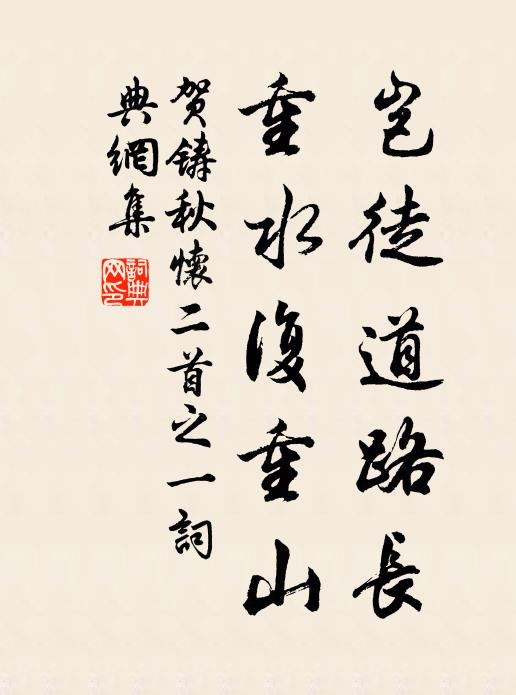 豈徒道路長
重水復重山
賀鑄秋懷二首之一詞
典網集
詞典
网印